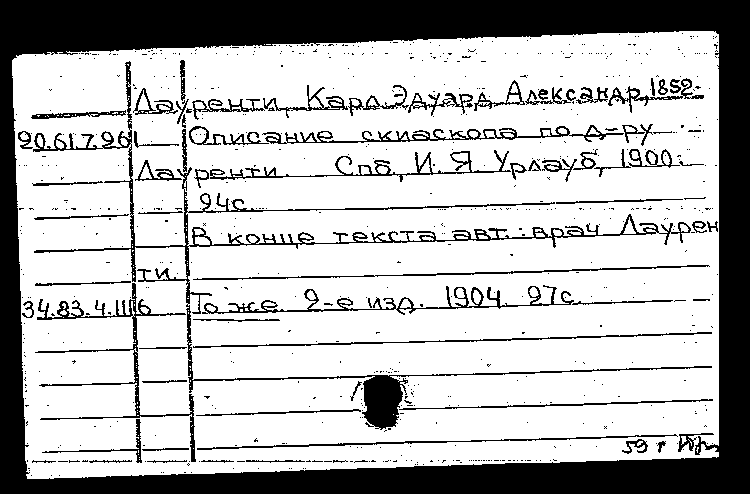 Лауренти, Карл Эдуард Александр, 1852-
20.61.7.261 Описание скиаскопа по д-ру
Лауренти. Спб, И. Я. Урлауб, 1900.
24с.
В конце текста авт.: врач Лаурен
ти.
34.83.4.1116 То же. 2-е изд. 1904. 27с.
59 г